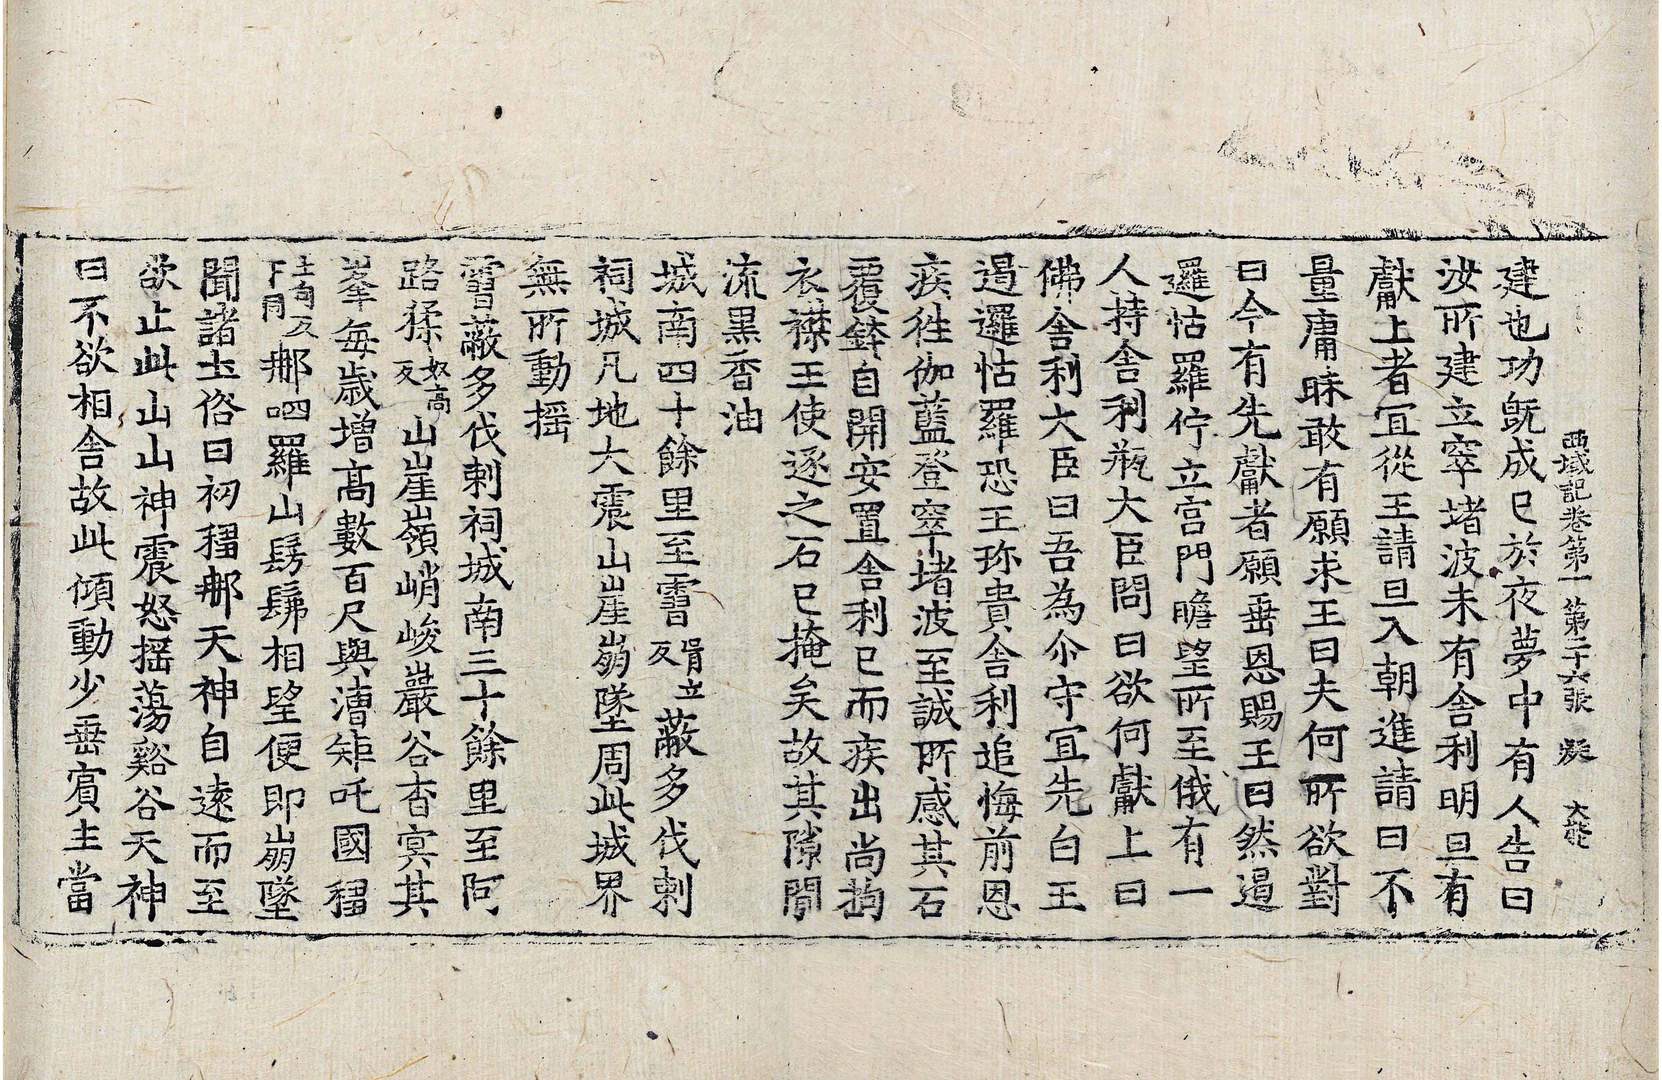 西域記卷第一 第二十六張 凝
建也功旣成已於夜夢中有人告曰
汝所建立窣堵波未有舍利明旦有
獻上者宜從王請旦入朝進請曰不
量庸昧敢有願求王曰夫何所欲對
曰今有先獻者願垂恩賜王曰然遏
邏怙羅佇立宮門瞻望所至俄有一
人持舍利瓶大臣問曰欲何獻上曰
佛舍利大臣曰吾爲尒守宜先白王
遏邏怙羅恐王珎貴舍利追悔前恩
疾徃伽藍登窣堵波至誠所感其石
覆鉢自開安置舍利已而疾出尚拘
衣襟王使逐之石已掩矣故其隙間
流黑香油
城南四十餘里至霫胥立反蔽多伐剌
祠城凡地大震山崖崩墜周此城界
無所動搖
霫蔽多伐剌祠城南三十餘里至阿
路猱奴高反山崖嶺峭峻巖谷杳冥其
峯每歲增高數百尺與漕矩吒國穳
士句反下同那呬羅山髣髴相望便即崩墜
聞諸土俗曰初穳那天神自遠而至
欲止此山山神震怒搖蕩谿谷天神
曰不欲相舍故此傾動少垂賓主當